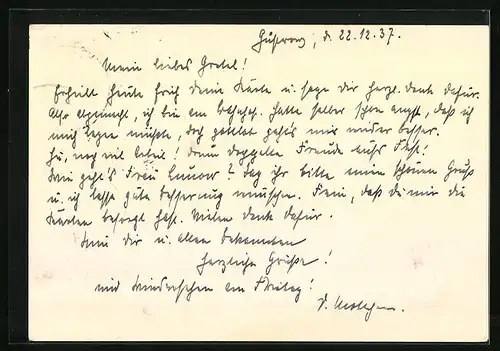 Güstrow, d. 22.12.37.
Mein liebes Gretel!
Erhielt heute früh deine Karte u. sage dir herzl. Dank dafür.
ich bin am hatte selber schon Angst, daß ich
mich legen müßte, doch geht's mir wieder besser.
noch viel Arbeit! Freude aufs Fest!
Wie geht's Frau ? Sag ihr bitte einen schönen Gruß
u. ich lasse gute Besserung wünschen. Fein, daß du mir die
Karten besorgt hast. Vielen Dank dafür.
dir u. allen Bekannten
herzliche Grüße!
und Wiedersehen am Freitag!